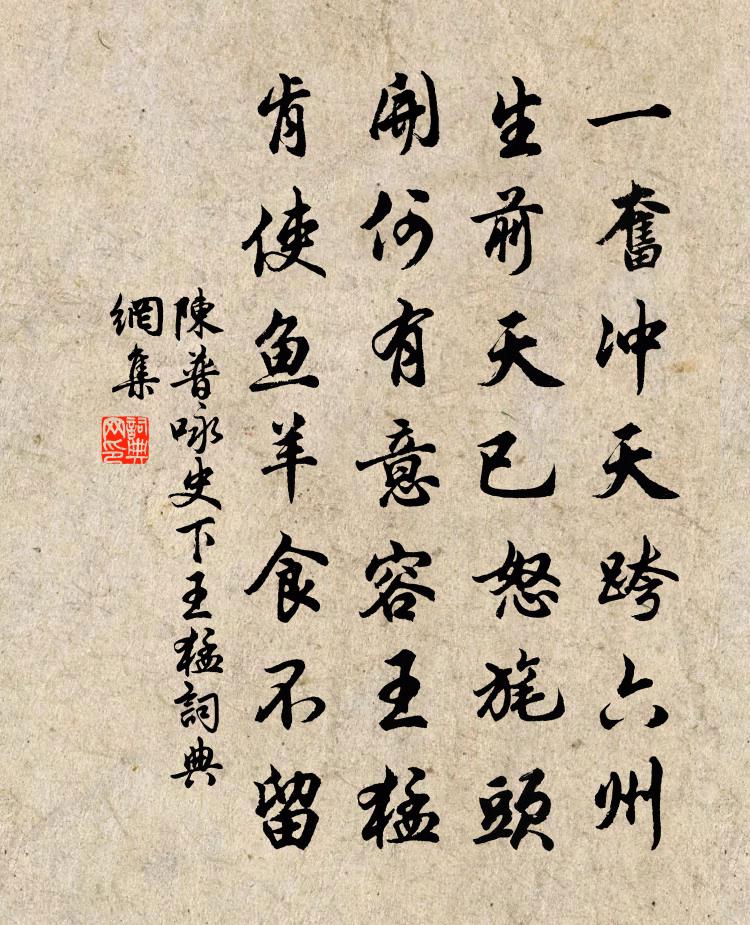 一奮冲天天跨六州
生前天已怒旄頭
開何有意容王猛
肯使鱼羊食不留
陳普咏史下王猛詞典
網集
詞典
网印